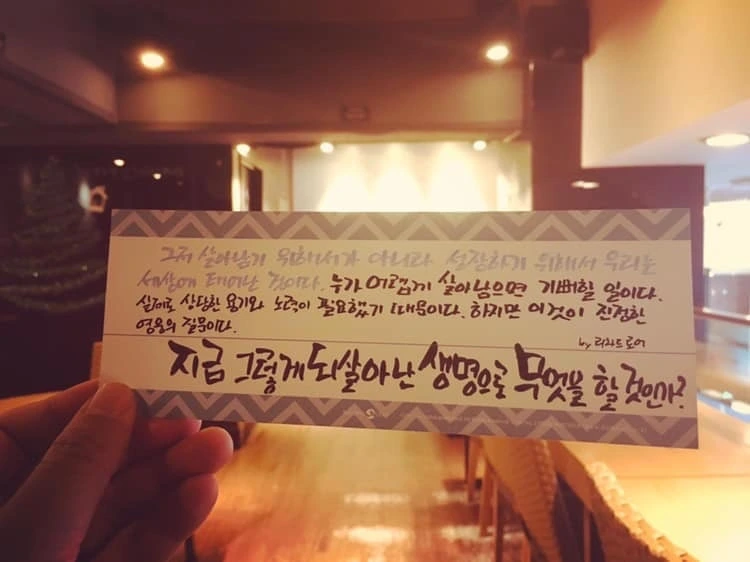 그저 살아남기 위해서가 아니라 성장하기 위해서 우리는
세상에 태어난 것이다. 누가 어렵게 살아남으면 기뻐할 일이다.
실제로 상당한 용기와 노력이 필요했기 때문이다. 하지만 이것이 진정한
영웅의 질문이다.
by 리차드로어
지금 그렇게 되살아난 생명으로 무엇을 할 것인가?